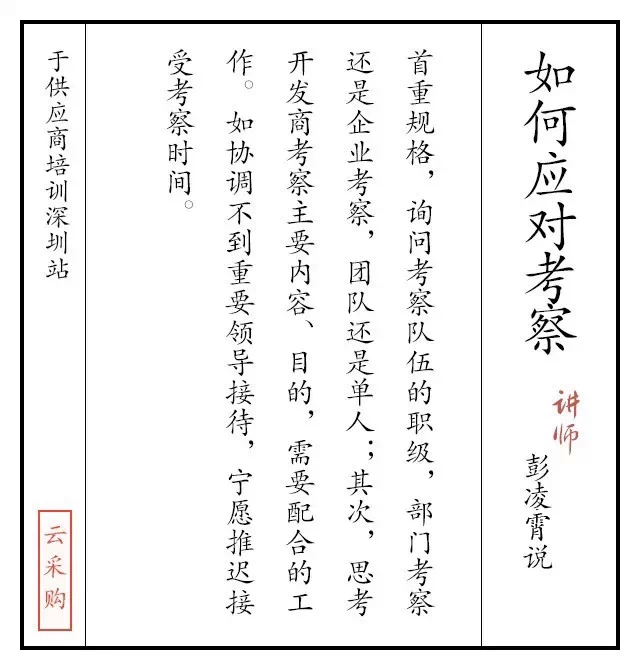 如何应对考察
讲师
彭凌霄说
首重规格，询问考察队伍的职级，部门考察
还是企业考察，团队还是单人；其次，思考
开发商考察主要内容、目的，需要配合的工
作。如协调不到重要领导接待，宁愿推迟接
受考察时间。
于供应商培训深圳站
云采购